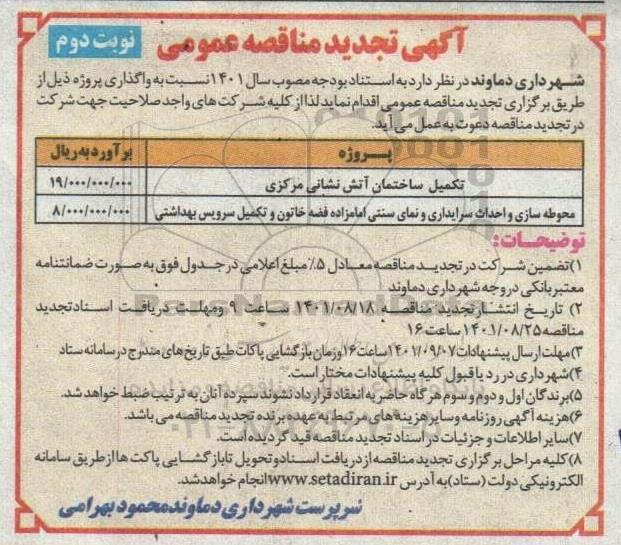 آگهی تجدید مناقصه عمومی
نوبت دوم
شهرداری دماوند در نظر دارد به استناد بودجه مصوب سال ۱۴۰۱ نسبت به واگذاری پروژه ذیل از
طریق برگزاری تجدید مناقصه عمومی اقدام نماید لذا از کلیه شرکت های واجد صلاحیت جهت شرکت
در تجدید مناقصه دعوت به عمل می آید.
پروژه برآورد به ریال
تکمیل ساختمان آتش نشانی مرکزی ۱۹/۰۰۰/۰۰۰/۰۰۰
محوطه سازی و احداث سرایداری و نمای سنتی امامزاده فضه خاتون و تکمیل سرویس بهداشتی ۸/۰۰۰/۰۰۰/۰۰۰
توضیحات:
۱)تضمین شرکت در تجدید مناقصه معادل ۵٪ مبلغ اعلامی در جدول فوق به صورت ضمانتنامه
معتبر بانکی در وجه شهرداری دماوند
۲) تاریخ انتشار تجدید مناقصه ۱۴۰۱/۰۸/۱۸ ساعت ۹ ومهلت دریافت اسناد تجدید
مناقصه ۱۴۰۱/۰۸/۲۵ ساعت ۱۶
۳)مهلت ارسال پیشنهادات ۱۴۰۱/۰۹/۰۷ ساعت ۱۶ وزمان بازگشایی پاکات طبق تاریخ های مندرج در سامانه ستاد
۴)شهرداری در رد یا قبول کلیه پیشنهادات مختار است.
۵)برندگان اول و دوم و سوم هر گاه حاضر به انعقاد قرارداد نشوند سپرده آنان به ترتیب ضبط خواهد شد.
۶)هزینه آگهی روزنامه و سایر هزینه های مرتبط به عهده برنده تجدید مناقصه می باشد.
۷)سایر اطلاعات و جزئیات در اسناد تجدید مناقصه قید گردیده است.
۸)کلیه مراحل برگزاری تجدید مناقصه از دریافت اسناد و تحویل تا بازگشایی پاکت ها از طریق سامانه
الکترونیکی دولت (ستاد) به آدرس www.setadiran.ir انجام خواهد شد.
سرپرست شهرداری دماوند محمود بهرامی
ParsNamadData